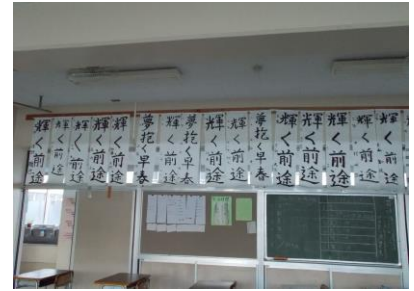 輝く前途
輝く前途
輝く前途
輝く前途
輝く前途
夢抱く早春
輝く前途
夢抱く早春
輝く前途
輝く前途
夢抱く早春
輝く前途
輝く前途
輝く前途
輝く前途
輝く前途